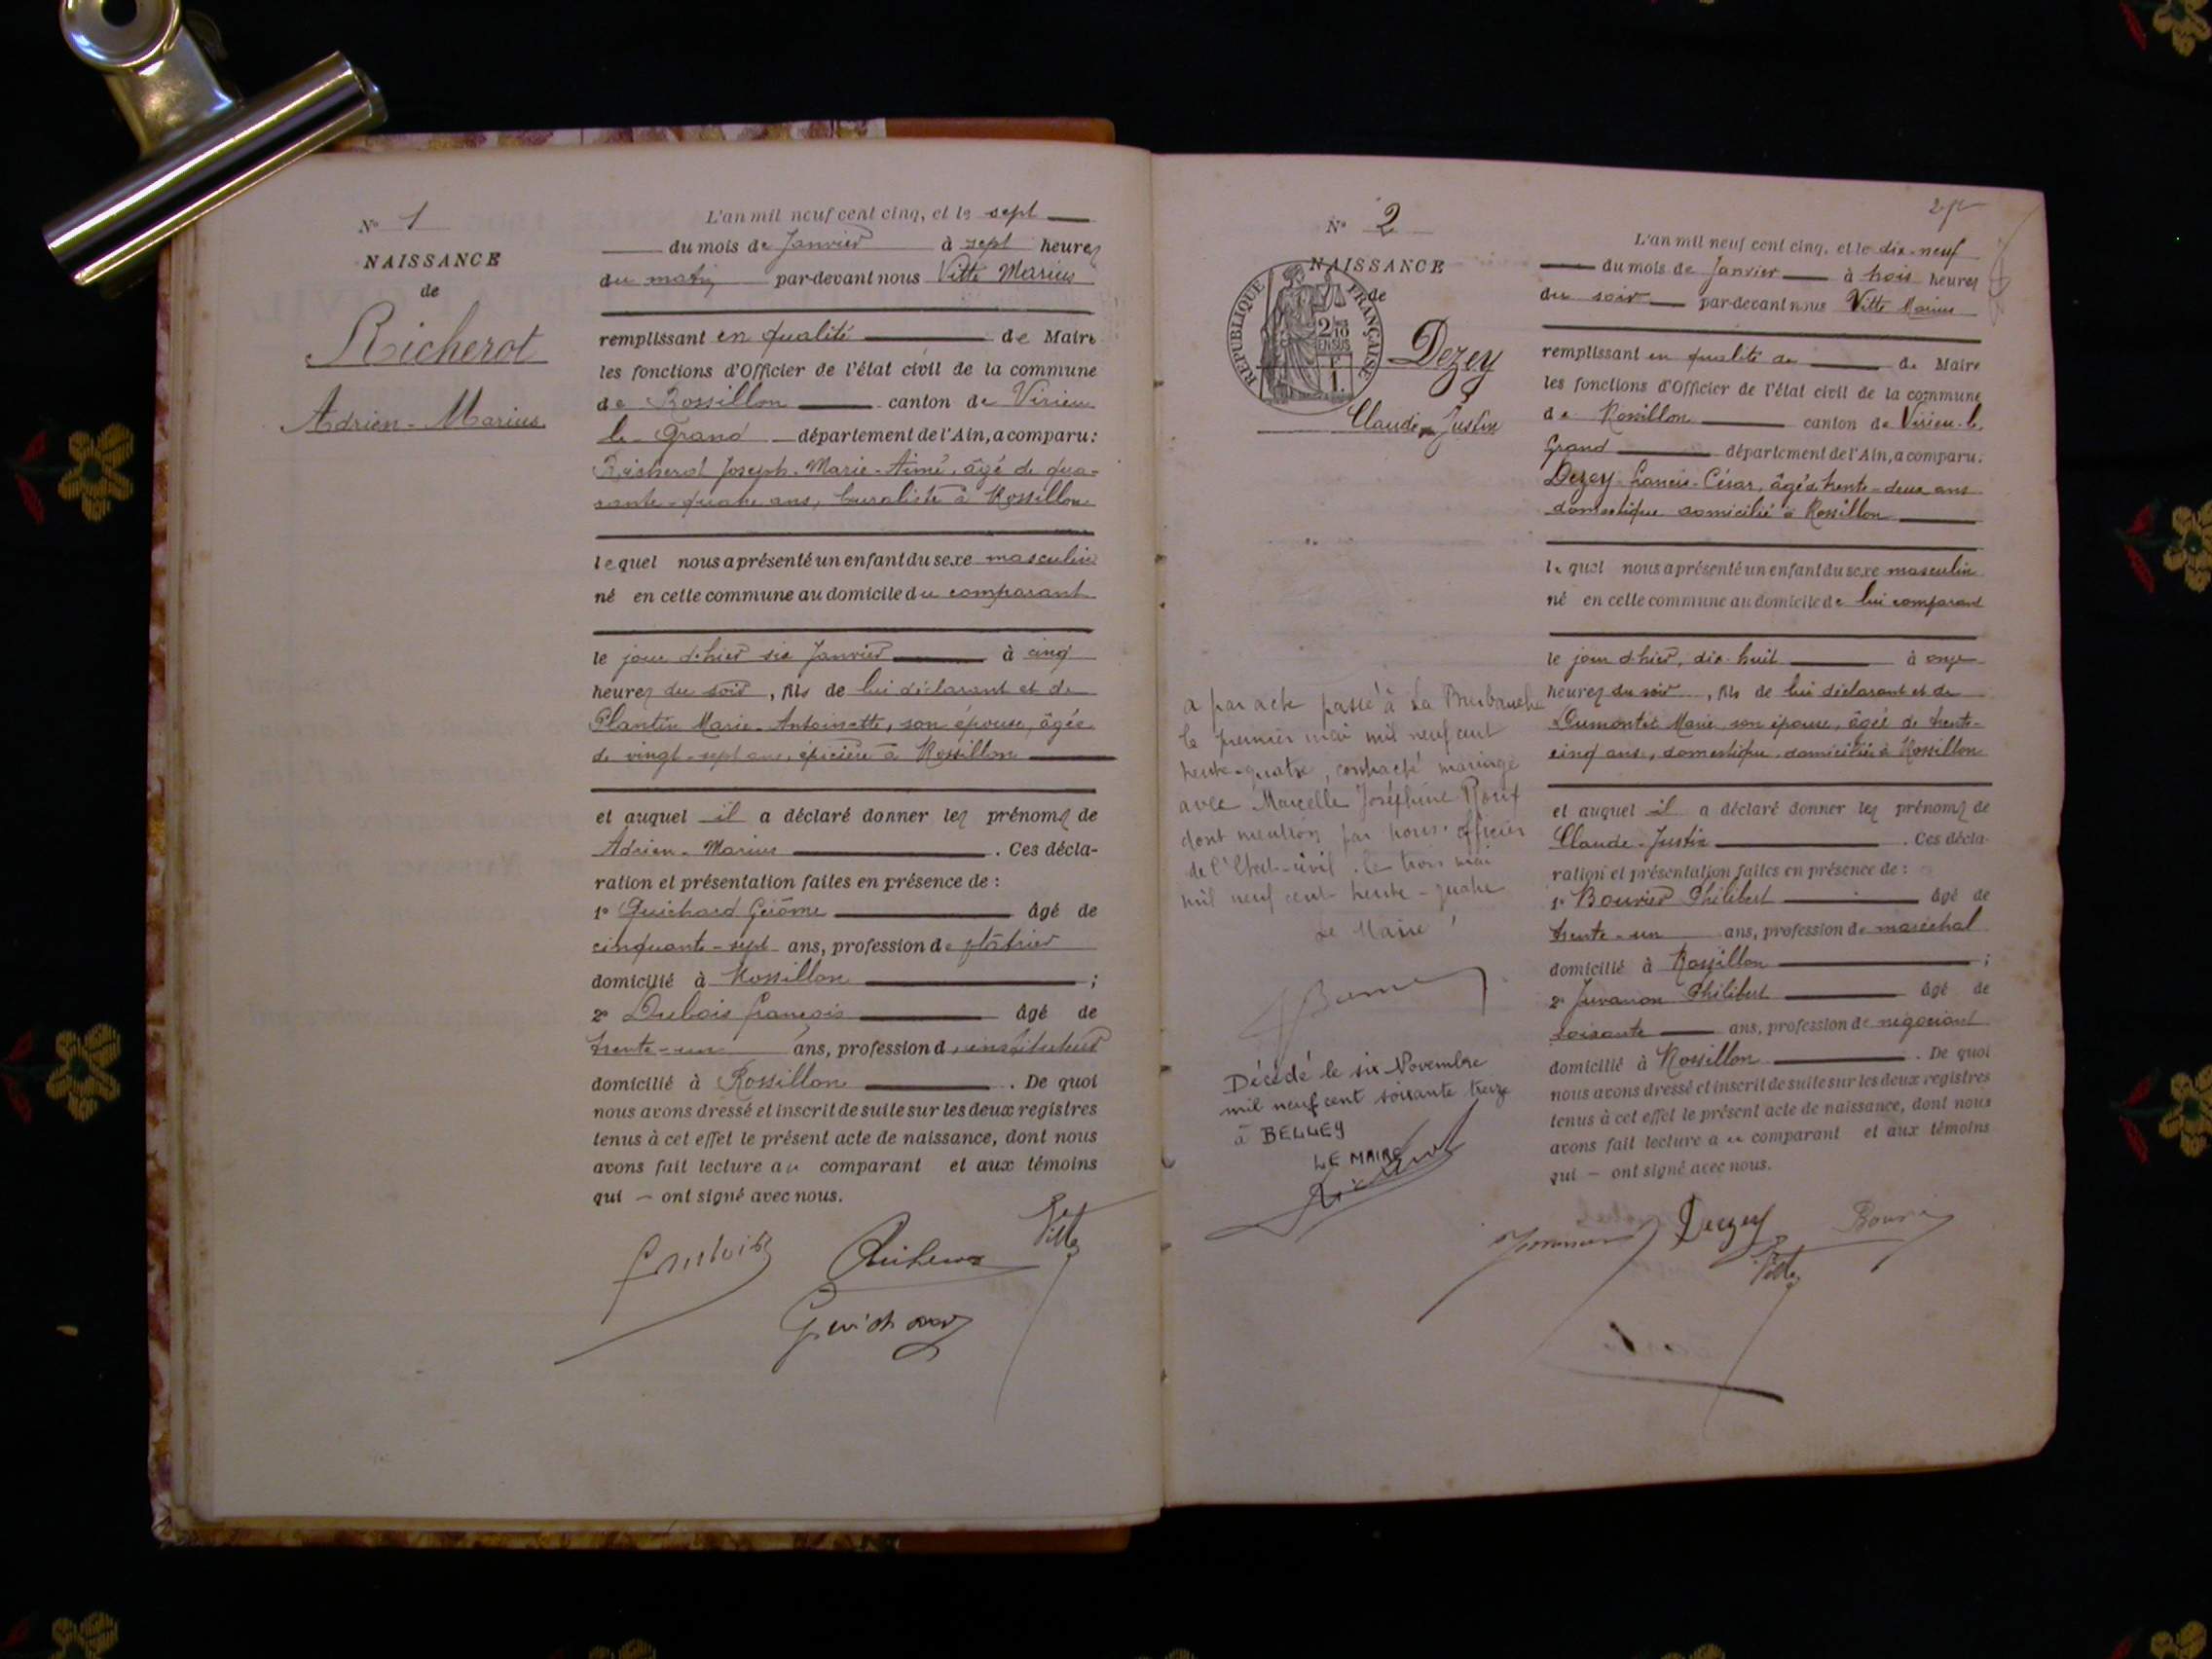 N° 1
NAISSANCE
de
Richerot
Adrien-Marius
L'an mil neuf cent cinq, et le sept
du mois de Janvier à sept heures
du matin par-devant nous Vitte Marius
remplissant en qualité de Maire
les fonctions d'Officier de l'état civil de la commune
de Rossillon canton de Virieu
le-Grand département de l'Ain, a comparu:
Richerot Joseph-Marie-Aimé, âgé de qua-
rante-quatre ans, buraliste à Rossillon
lequel nous a présenté un enfant du sexe masculin
né en cette commune au domicile du comparant
le jour d'hier six Janvier à cinq
heures du soir, fils de lui déclarant et de
Plantin Marie-Antoinette, son épouse, âgée
de vingt-sept ans, épicière à Rossillon
et auquel il a déclaré donner les prénoms de
Adrien-Marius. Ces décla-
ration et présentation faites en présence de:
1° Guichard Gérôme âgé de
cinquante-sept ans, profession de plâtrier
domicilié à Rossillon;
2° Dubois françois âgé de
trente-un ans, profession d'instituteur
domicilié à Rossillon. De quoi
nous avons dressé et inscrit de suite sur les deux registres
tenus à cet effet le présent acte de naissance, dont nous
avons fait lecture au comparant et aux témoins
qui - ont signé avec nous.
Vitte
Guichard
N° 2
NAISSANCE
de
RÉPUBLIQUE FRANÇAISE
2/10
EN SUS
1.
Dezey
Claude-Justin
a par acte passé à La Burbanche
le premier mai mil neuf cent
trente-quatre, contracté mariage
avec Marcelle Joséphine
dont mention par nous officier
de l'Etat-civil le trois mai
mil neuf cent trente-quatre
Le Maire
Décédé le six Novembre
mil neuf cent soixante treize
à BELLEY
LE MAIRE
L'an mil neuf cent cinq, et le dix-neuf
du mois de Janvier à trois heures
du soir par-devant nous Vitte Marius
remplissant en qualité de de Maire
les fonctions d'Officier de l'état civil de la commune
de Rossillon canton de Virieu-le-
Grand département de l'Ain, a comparu:
Dezey francis-César, âgé de trente-deux ans
domestique domicilié à Rossillon
lequel nous a présenté un enfant du sexe masculin
né en cette commune au domicile de lui comparant
le jour d'hier, dix-huit à onze
heures du soir, fils de lui déclarant et de
Dumontet Marie, son épouse, âgée de trente-
cinq ans, domestique, domiciliée à Rossillon
et auquel il a déclaré donner les prénoms de
Claude-Justin. Ces décla-
ration et présentation faites en présence de:
1° Bouvier Philibert âgé de
trente-un ans, profession de maréchal
domicilié à Rossillon;
2° Juvanon Philibert âgé de
soixante ans, profession de négociant
domicilié à Rossillon. De quoi
nous avons dressé et inscrit de suite sur les deux registres
tenus à cet effet le présent acte de naissance, dont nous
avons fait lecture au comparant et aux témoins
qui - ont signé avec nous.
Dezey
Vitte